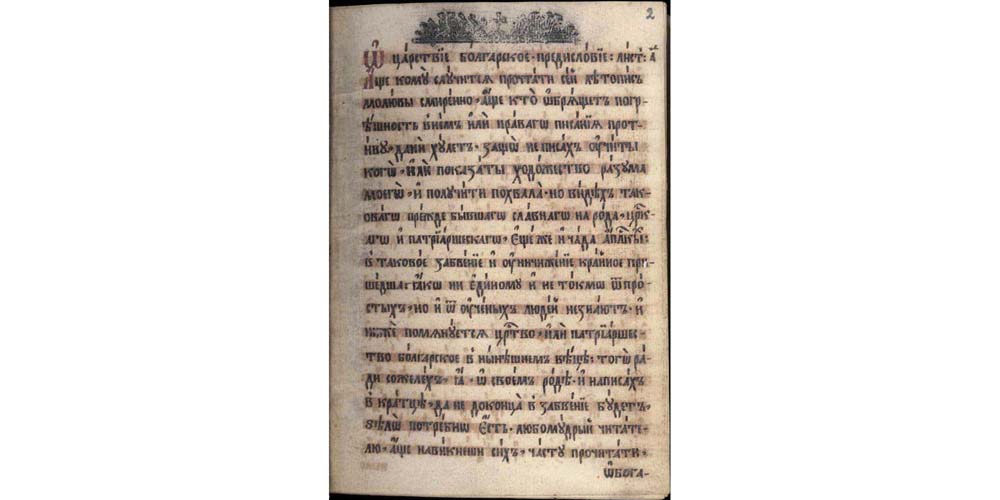 2
Ѿ ца́рствїе бо́лгарское · предисло́вїе : ли́ст : а҃
А҆́ще кому̀ случи́тсѧ прочта́ти се́й лѣ́топись
молю́вы смире́нно · а҆́ще кто̀ ѡ҆брѧ́щетъ погр-
ѣ́шность внемъ и҆лѝ пра́вагѡ писа́нїѧ прот-
и́ву · да нѝ ху́летъ · зашѡ̀ не писа́хъ ѹ҆чи́ты
когѡ̀ · и҆лѝ показа́ты худо́жество ра́зума
моегѡ̀ · и҆ получи́ти похва́ла · но ви́дѣхъ так-
ова́гѡ пре́жде бы́вшагѡ сла́внагѡ наро́да · цр҃к-
агѡ и҆ патрїа́ршескагѡ · е҆щѐ же и҆ ча́да
в таково́е забве́нїе и҆ ѹ҆ничиже́нїе кра́йное при-
ше́дша : ꙗ҆́кѡ ни е҆ди́ному и҆ не то́кмѡ ѿ про-
сты́хъ · но и҆ ѿ ѹ҆че́ныхъ люде́й незна́ютъ · и҆
и҆́бже помѧну́етсѧ црⷭ҇тво · и҆лѝ патрїа́рше-
тво бо́лгарское в ны́нѣшнемъ вѣ́цѣ : тогѡ̀ ра́-
ди сожеле́хъ · ꙗ҆̀ · ѡ҆ свое́мъ ро́дѣ · и҆ написа́хъ
в кра́тцѣ · да не доконца̀ в забве́нїе бу́детъ ·
ѕѣ́лѡ потре́бнѡ є҆́сть · любому́дрый чита́те-
лю · а҆́ще навы́кнеши си́хъ · ча́сту прочита́ти ·
ѡ҆бога-